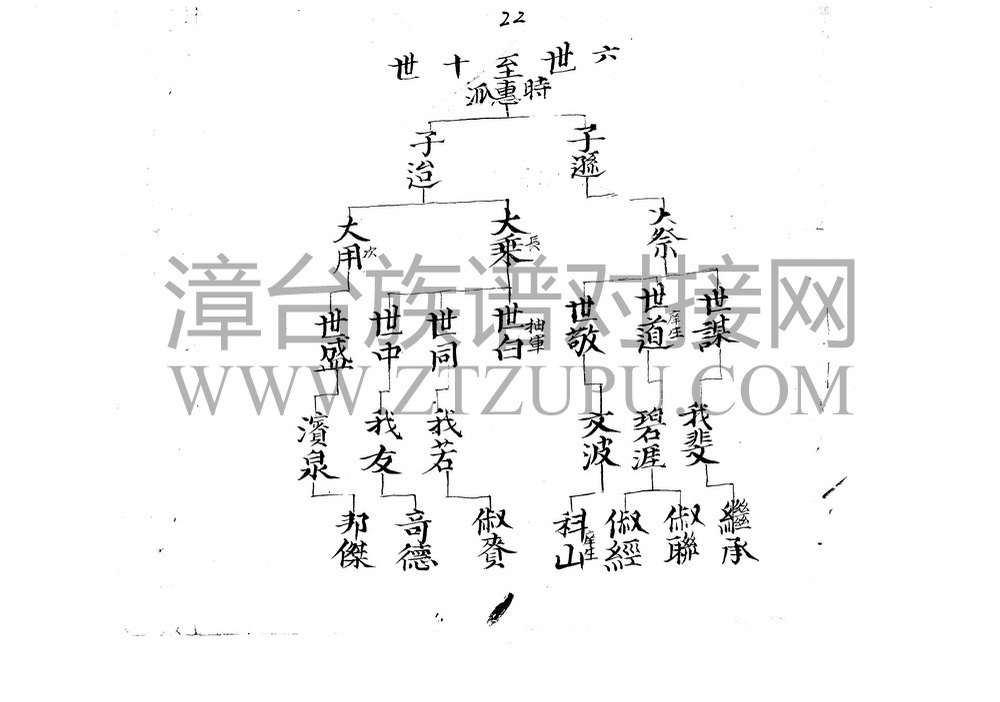 22
六世至十世
時惠派
子遜
子治
大祭
大乘 長
大用 次
世謀
世道 庠生
世敬
世白 抽軍
世同
世中
世盛
我斐
碧涯
文波
我若
我友
濱泉
繼承
俶聯
俶經
科山 庠生
俶賚
奇德
邦傑
漳台族谱对接网
WWW.ZTZUPU.COM